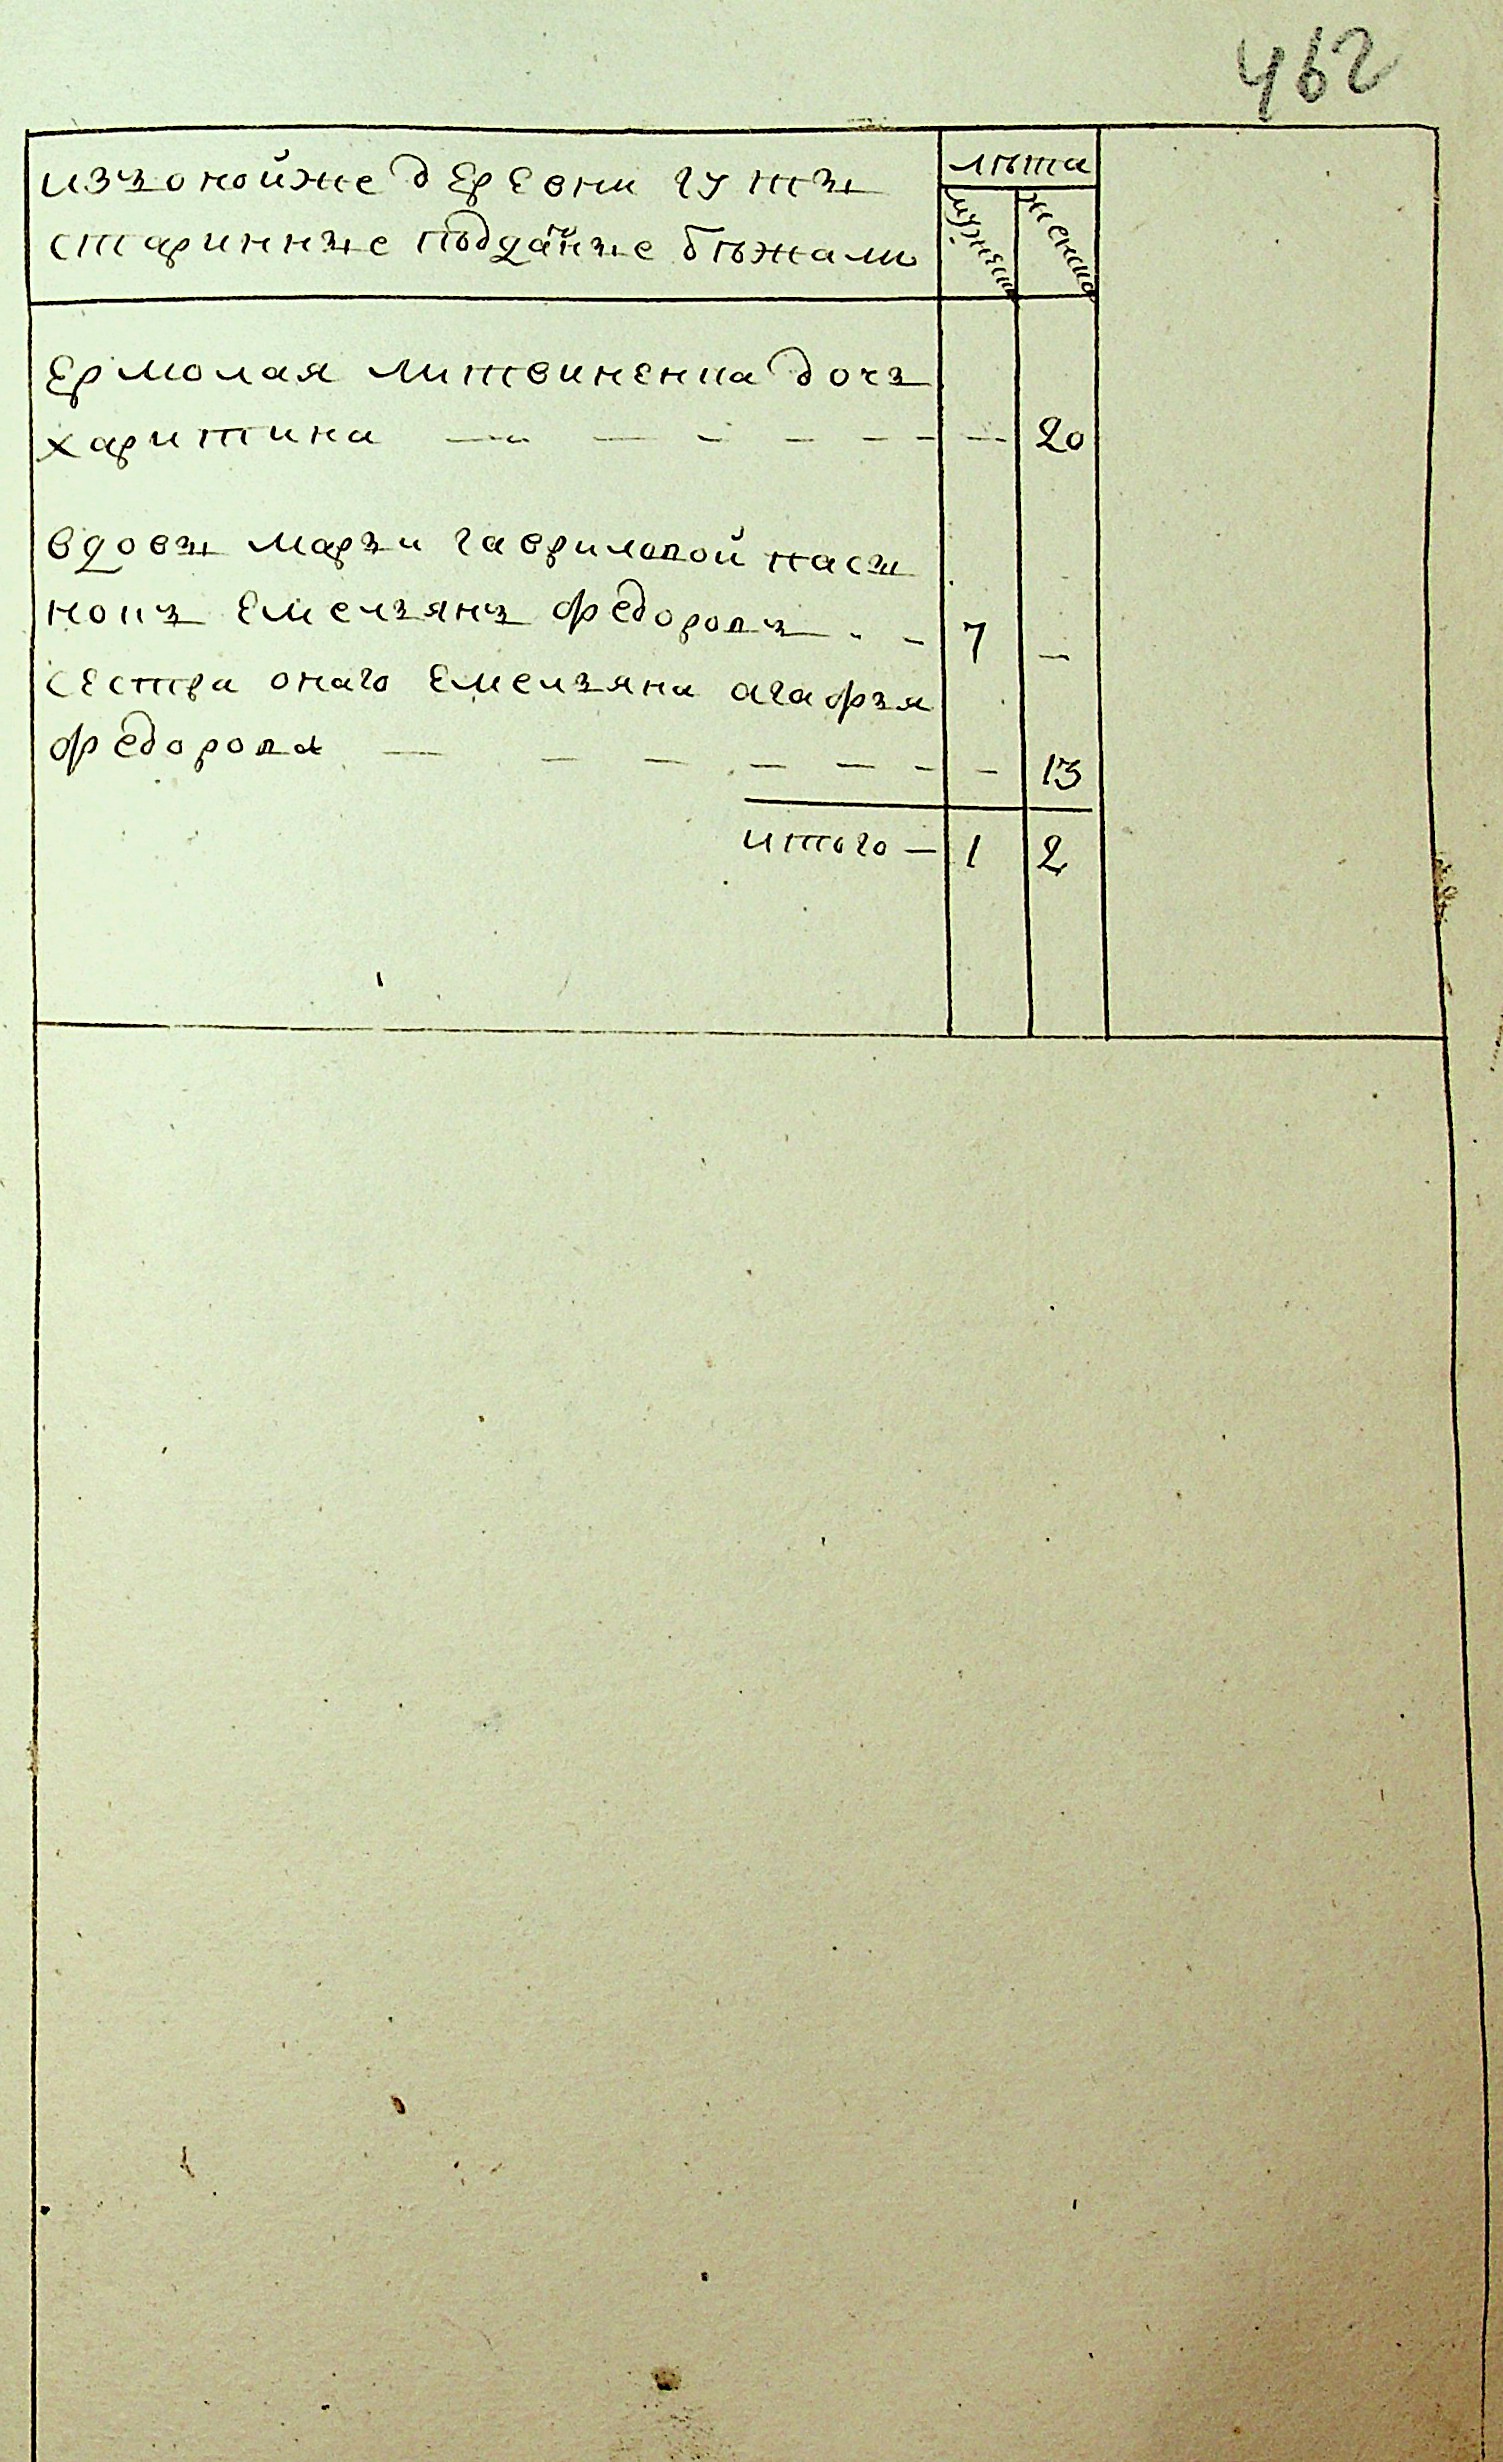 462
изъ оной же деревни гуты
старинные подданные бѣжали
лѣта
мужеск
женска
ермолая литвиненка дочъ
харитина — — — — — — — — 20
вдовы маръи гавриловой пасы
нокъ емелъянъ федоровъ - - 7 —
сестра онаго емелъяна агафъя
федорова — — — — — — — — 13
итого — 1 2